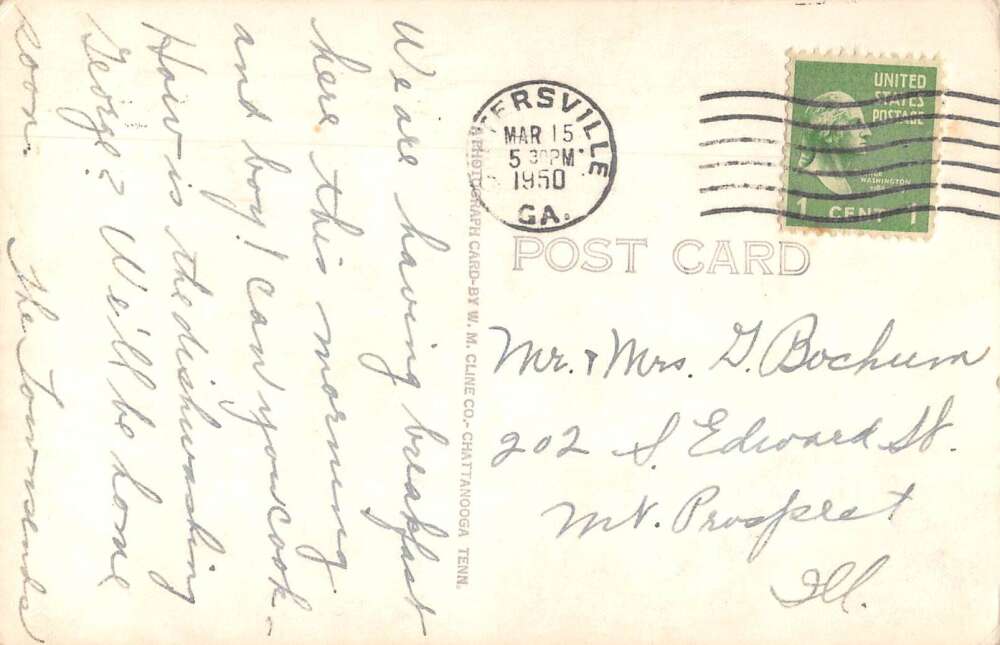 We are having breakfast
here this morning
and boy! can you cook -
How is the dishwashing
George? We'll be home
soon.
The Townsends
A PHOTOGRAPH CARD-BY W. M. CLINE CO.- CHATTANOOGA TENN.
TERSVILLE
MAR 15
5 30PM
1950
GA.
UNITED
STATES
POSTAGE
WASHINGTON
1 CENT 1
POST CARD
Mr. & Mrs. G. Bochum
202 S. Edward St.
Mt. Prospect
Ill.